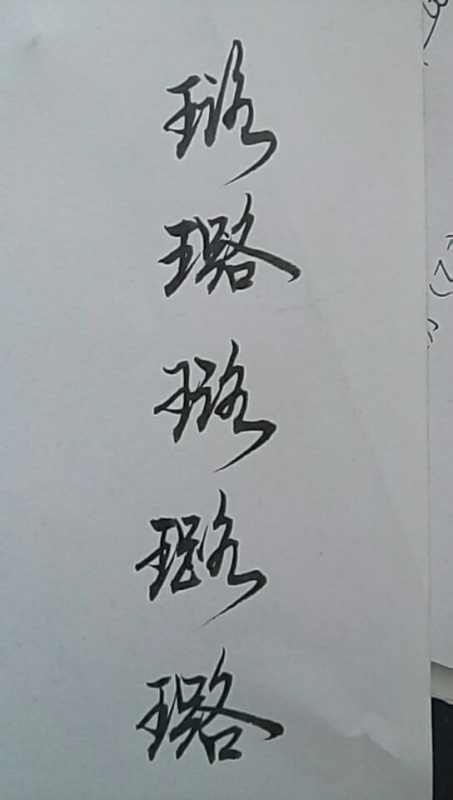 璐
璐
璐
璐
璐